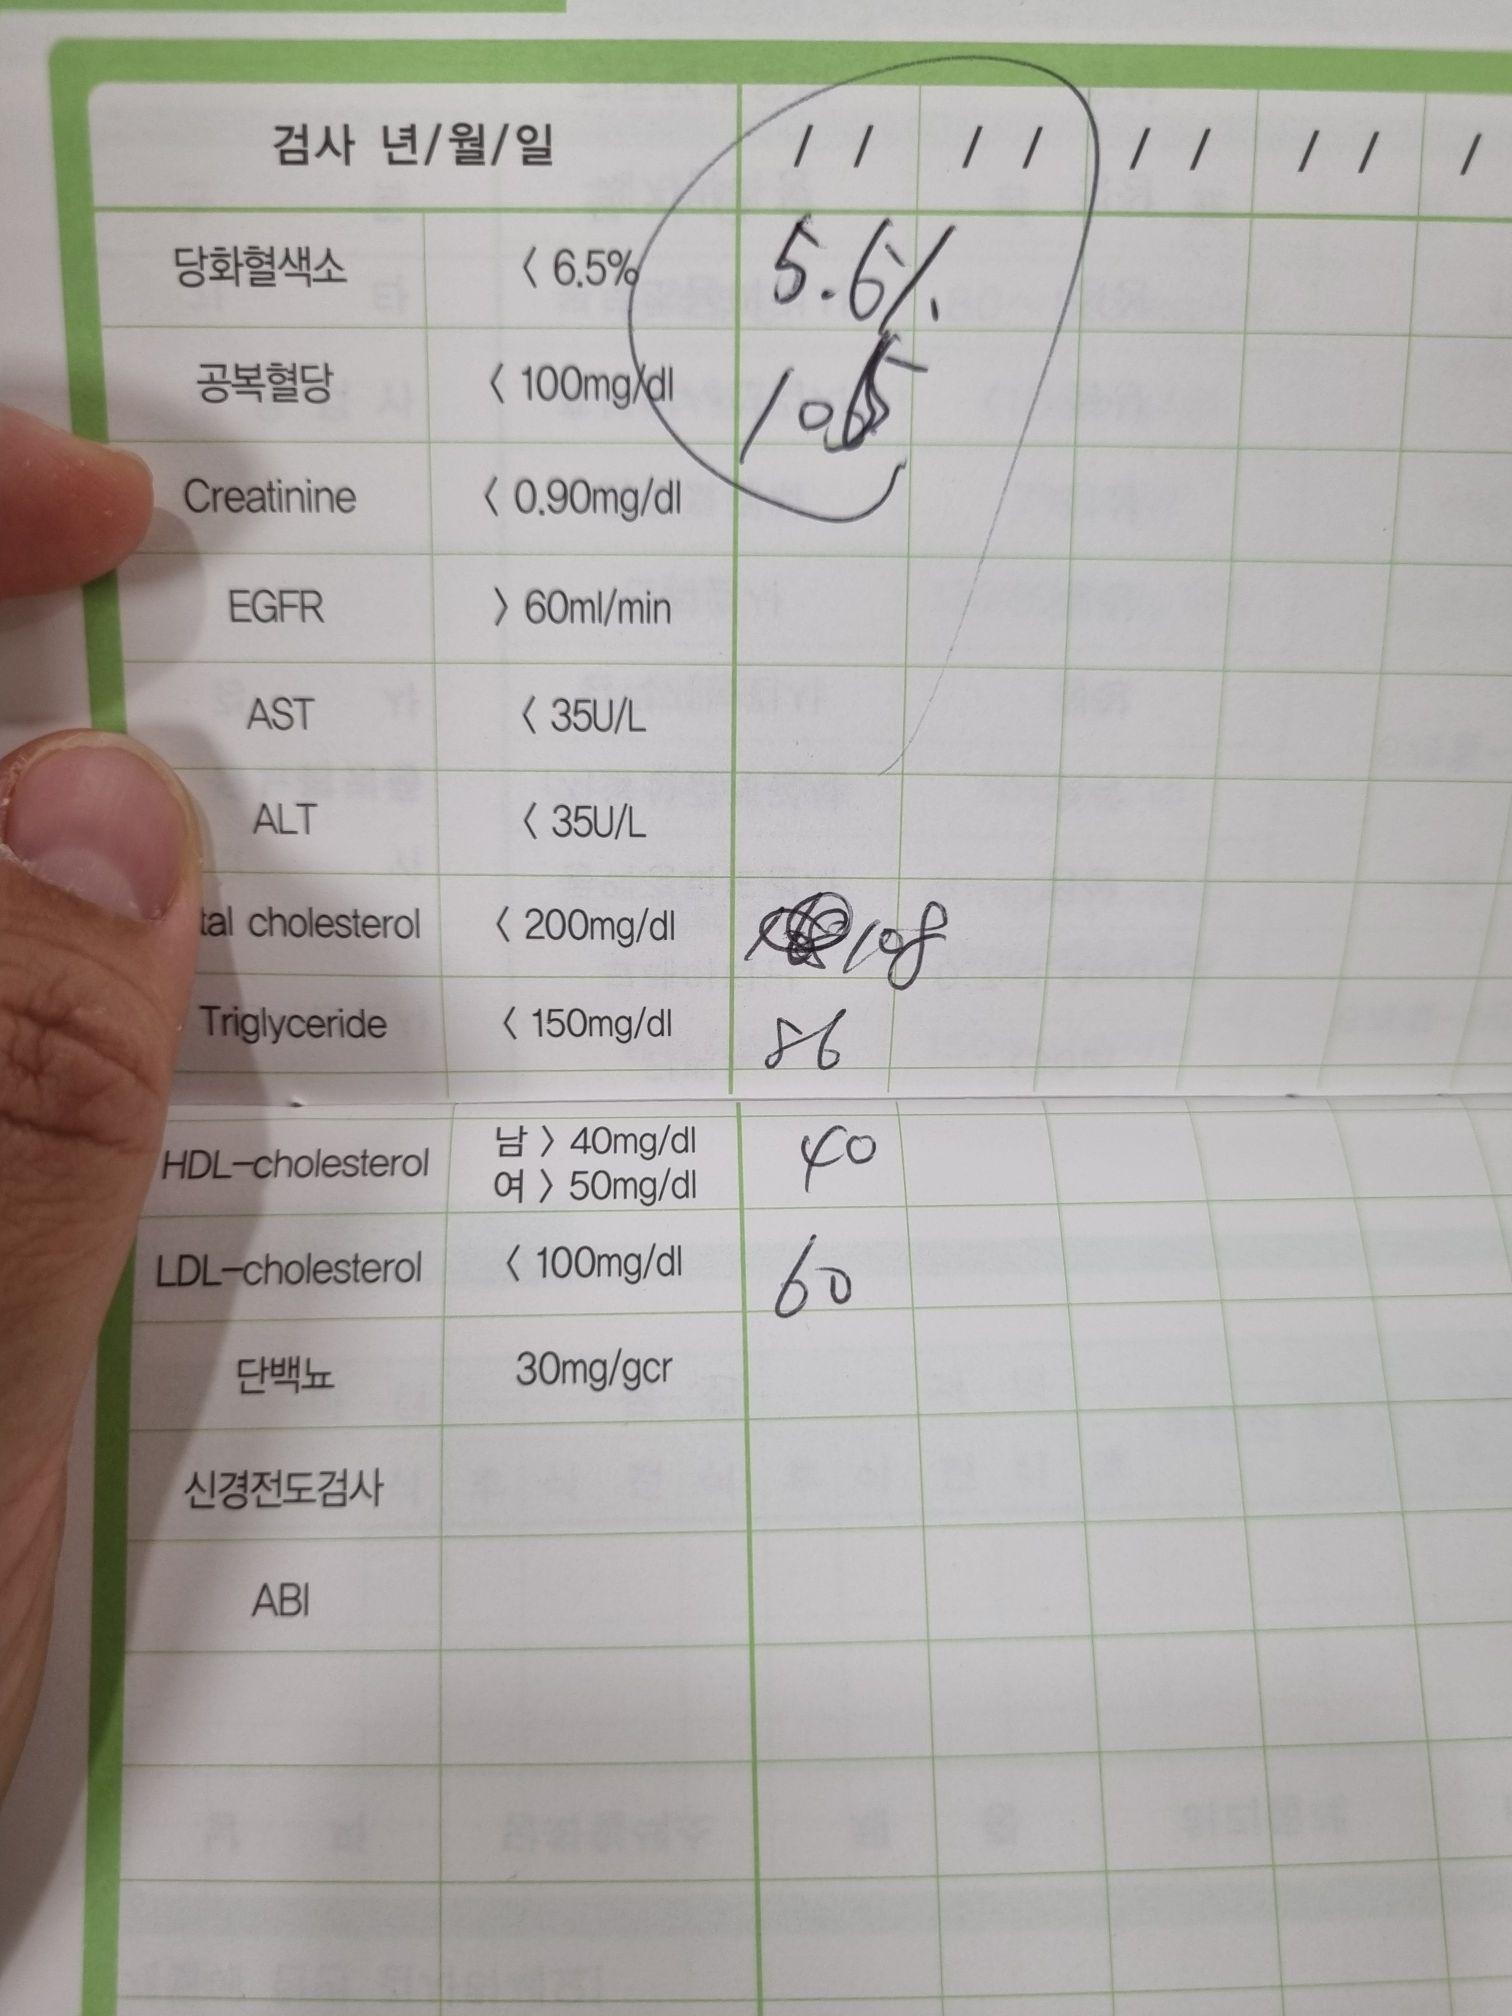 검사 년/월/일 / / / / / / / / /
당화혈색소 < 6.5% 5.6%
공복혈당 < 100mg/dl 105
Creatinine < 0.90mg/dl
EGFR > 60ml/min
AST < 35U/L
ALT < 35U/L
tal cholesterol < 200mg/dl 108
Triglyceride < 150mg/dl 86
HDL-cholesterol 남 > 40mg/dl 40
여 > 50mg/dl
LDL-cholesterol < 100mg/dl 60
단백뇨 30mg/gcr
신경전도검사
ABI